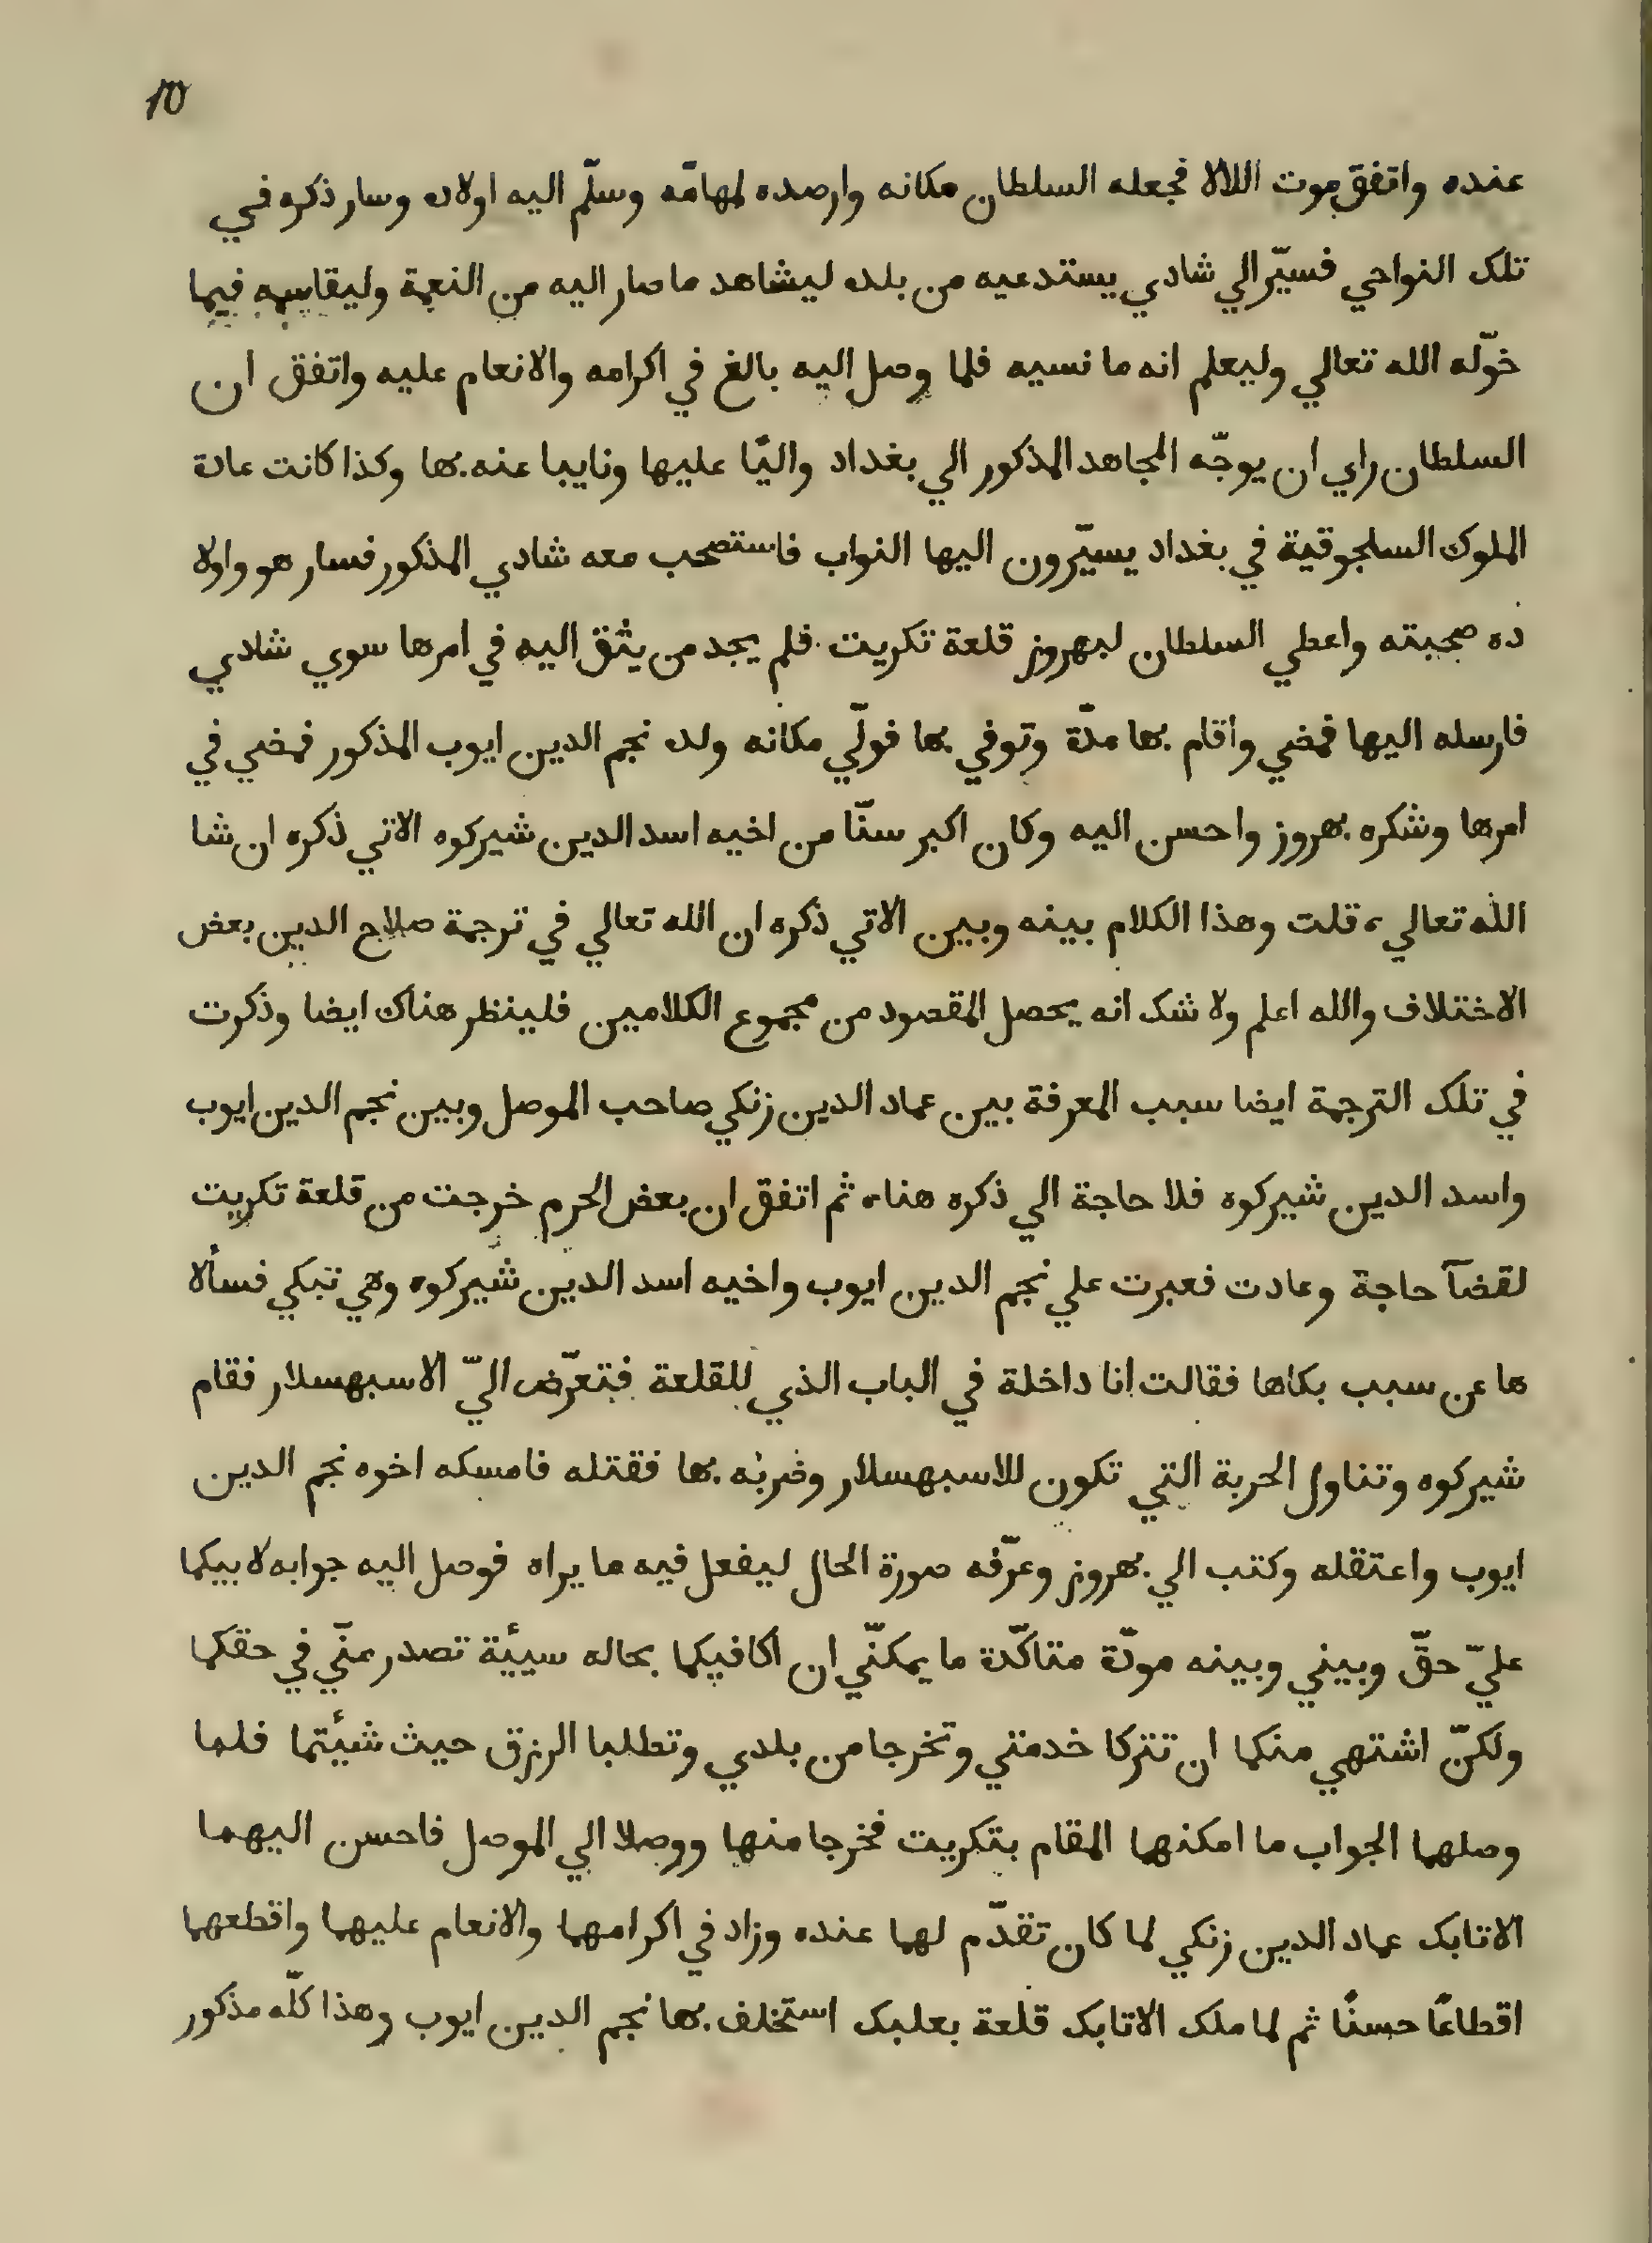 10
عنده واتفق موت اللالا فجعله السلطان مكانه وارصده لمهامّه وسلّم اليه اولاده وسار ذكره في
تلك النواحي فسيّر الي شادي يستدعيه من بلده ليشاهد ما صار اليه من النعمة وليقاسمه فيما
خوّله الله تعالي وليعلم انه ما نسيه فلما وصل اليه بالغ في اكرامه والانعام عليه واتفق ان
السلطان راي ان يوجّه المجاهد المذكور الي بغداد واليًا عليها ونايبا عنه بها وكذا كانت عادة
الملوك السلجوقية في بغداد يسيّرون اليها النواب فاستصحب معه شادي المذكور فسار هو واولا
ده صحبته واعطي السلطان لبهروز قلعة تكريت فلم يجد من يثق اليه في امرها سوي شادي
فارسله اليها فمضي واقام بها مدّة وتوفي بها فولّي مكانه ولده نجم الدين ايوب المذكور فمضي في
امرها وشكره بهروز واحسن اليه وكان اكبر سنّا من اخيه اسد الدين شيركوه الاتي ذكره ان شا
الله تعالي، قلت وهذا الكلام بينه وبين الاتي ذكره ان الله تعالي في ترجمة صلاح الدين بعض
الاختلاف والله اعلم ولا شك انه يحصل المقصود من مجموع الكلامين فلينظر هناك ايضا وذكرت
في تلك الترجمة ايضا سبب المعرفة بين عماد الدين زنكي صاحب الموصل وبين نجم الدين ايوب
واسد الدين شيركوه فلا حاجة الي ذكره هنا، ثم اتفق ان بعض الحرم خرجت من قلعة تكريت
لقضآ حاجة وعادت فعبرت علي نجم الدين ايوب واخيه اسد الدين شيركوه وهي تبكي فسألا
ها عن سبب بكاها فقالت انا داخلة في الباب الذي للقلعة فتعرّض اليّ الاسبهسلار فقام
شيركوه وتناول الحربة التي تكون للاسبهسلار وضربه بها فقتله فامسكه اخوه نجم الدين
ايوب واعتقله وكتب الي بهروز وعرّفه صورة الحال ليفعل فيه ما يراه فوصل اليه جوابه لابيكما
عليّ حقّ وبيني وبينه مودّة متاكّدة ما يمكنّي ان اكافيكما بحاله سيئّة تصدر عنّي في حقكما
ولكنّ اشتهي منكما ان تتركا خدمتي وتخرجا من بلدي وتطلبا الرزق حيث شئتما فلما
وصلهما الجواب ما امكنهما المقام بتكريت فخرجا منها ووصلا الي الموصل فاحسن اليهما
الاتابك عماد الدين زنكي لما كان تقدّم لهما عنده وزاد في اكرامهما والانعام عليهما واقطعهما
اقطاعًا حسنًا ثم لما ملك الاتابك قلعة بعلبك استخلف بها نجم الدين ايوب وهذا كلّه مذكور